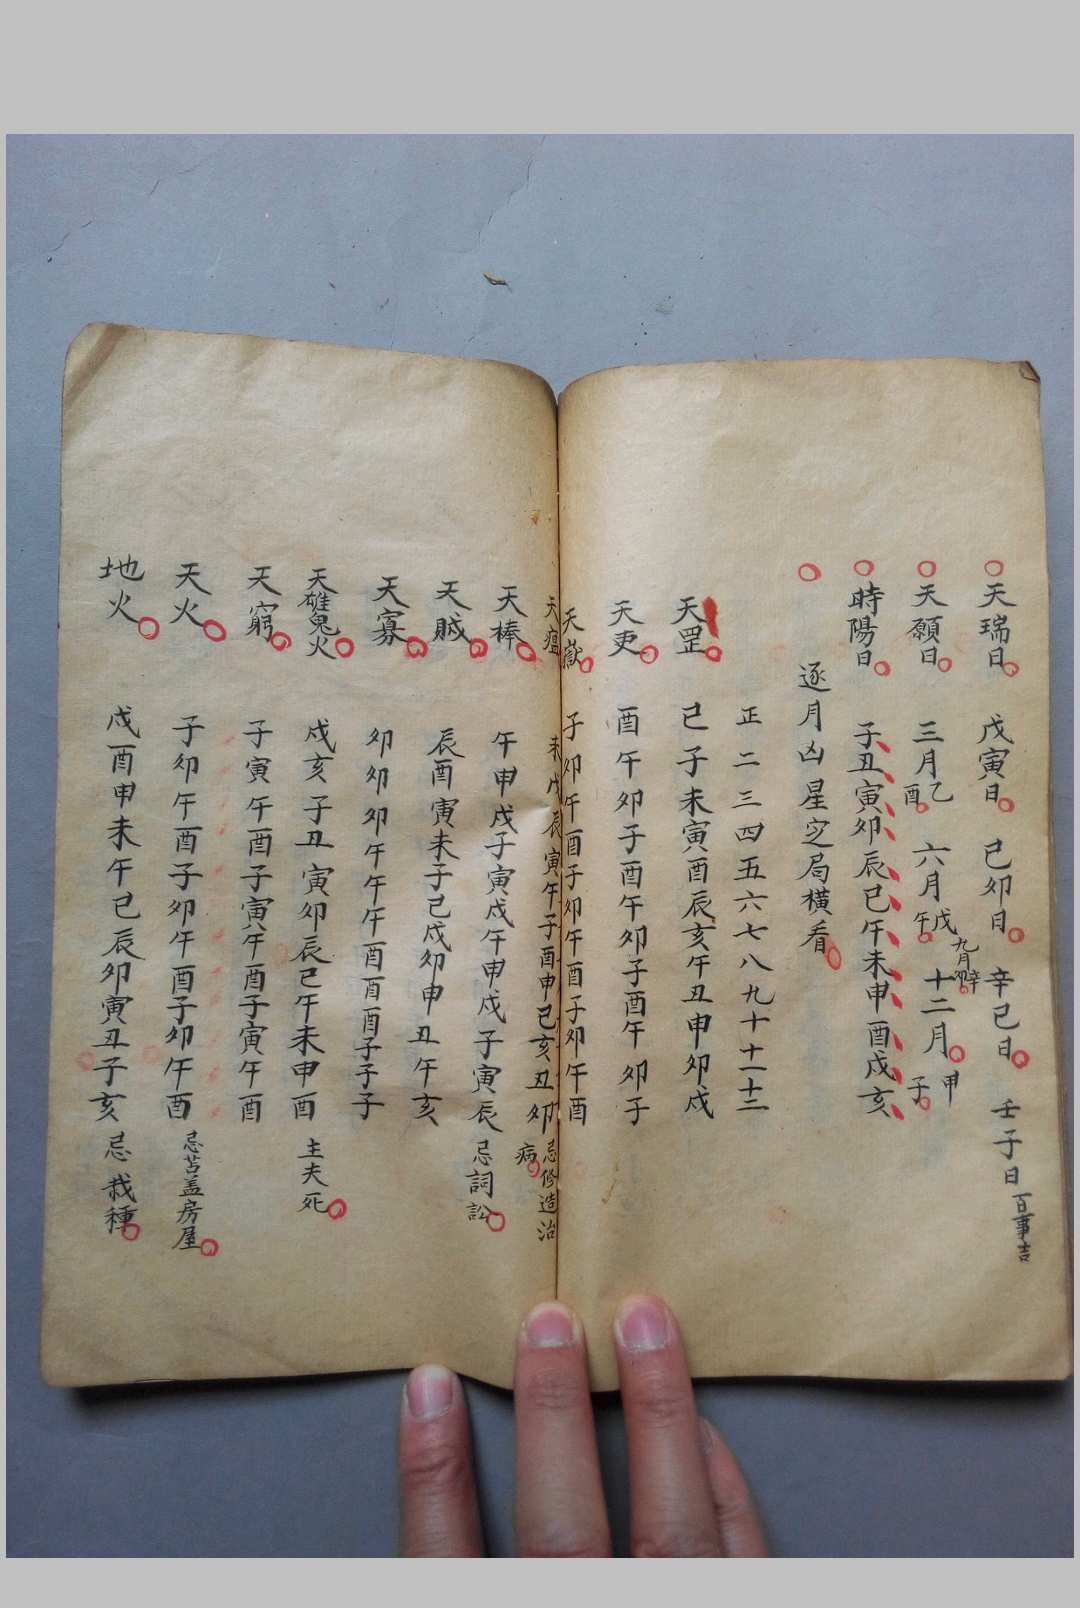 天瑞日 戊寅日 己卯日 辛巳日 壬子日 百事吉
天願日 三月乙酉 六月戊午 九月辛卯 十二月甲子
時陽日 子丑寅卯辰巳午未申酉戌亥
逐月凶星定局橫看
正二三四五六七八九十十一十二
天罡 巳子未寅酉辰亥午丑申卯戌
天吏 酉午卯子酉午卯子酉午卯子
天嶽 子卯午酉子卯午酉子卯午酉
天瘟 未戌辰寅午子酉申巳亥丑卯 忌修造治病
天棒 午申戌子寅戌午申戌子寅辰 忌詞訟
天賊 辰酉寅未子己戌卯申丑午亥
天寡 卯卯卯午午午酉酉酉子子子
天雄鬼火 戌亥子丑寅卯辰巳午未申酉 主夫死
天窮 子寅午酉子寅午酉子寅午酉
天火 子卯午酉子卯午酉子卯午酉 忌苫盖房屋
地火 戌酉申未午巳辰卯寅丑子亥 忌栽種